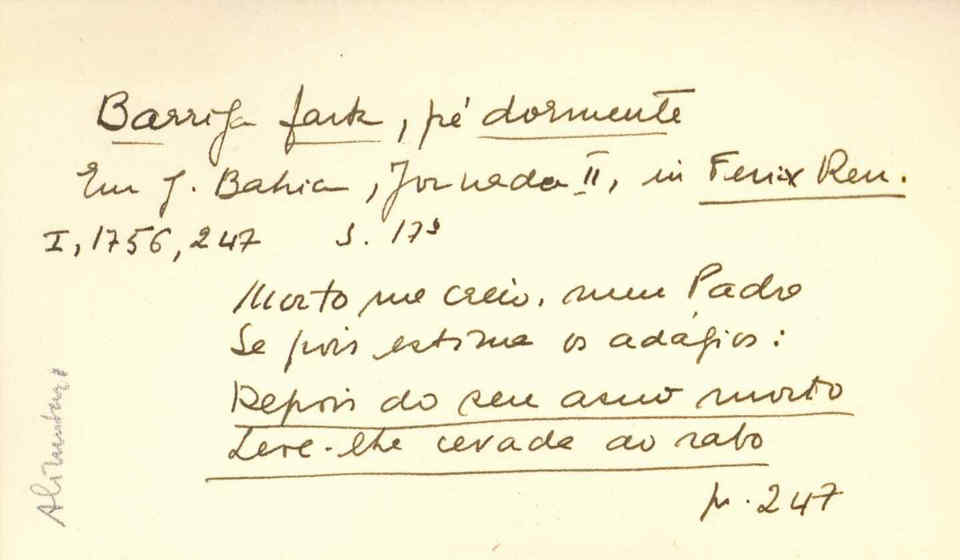 Barriga farta, pé dormente
Em J. Bahia, Jornada II, in Fenix Ren.
I, 1756, 247 S. 17º
Morto me creio, meu Padre
Se pois estima os adágios:
Depois do seu asno morto
Leve-lhe cevada ao rabo
p. 247
Alimentares